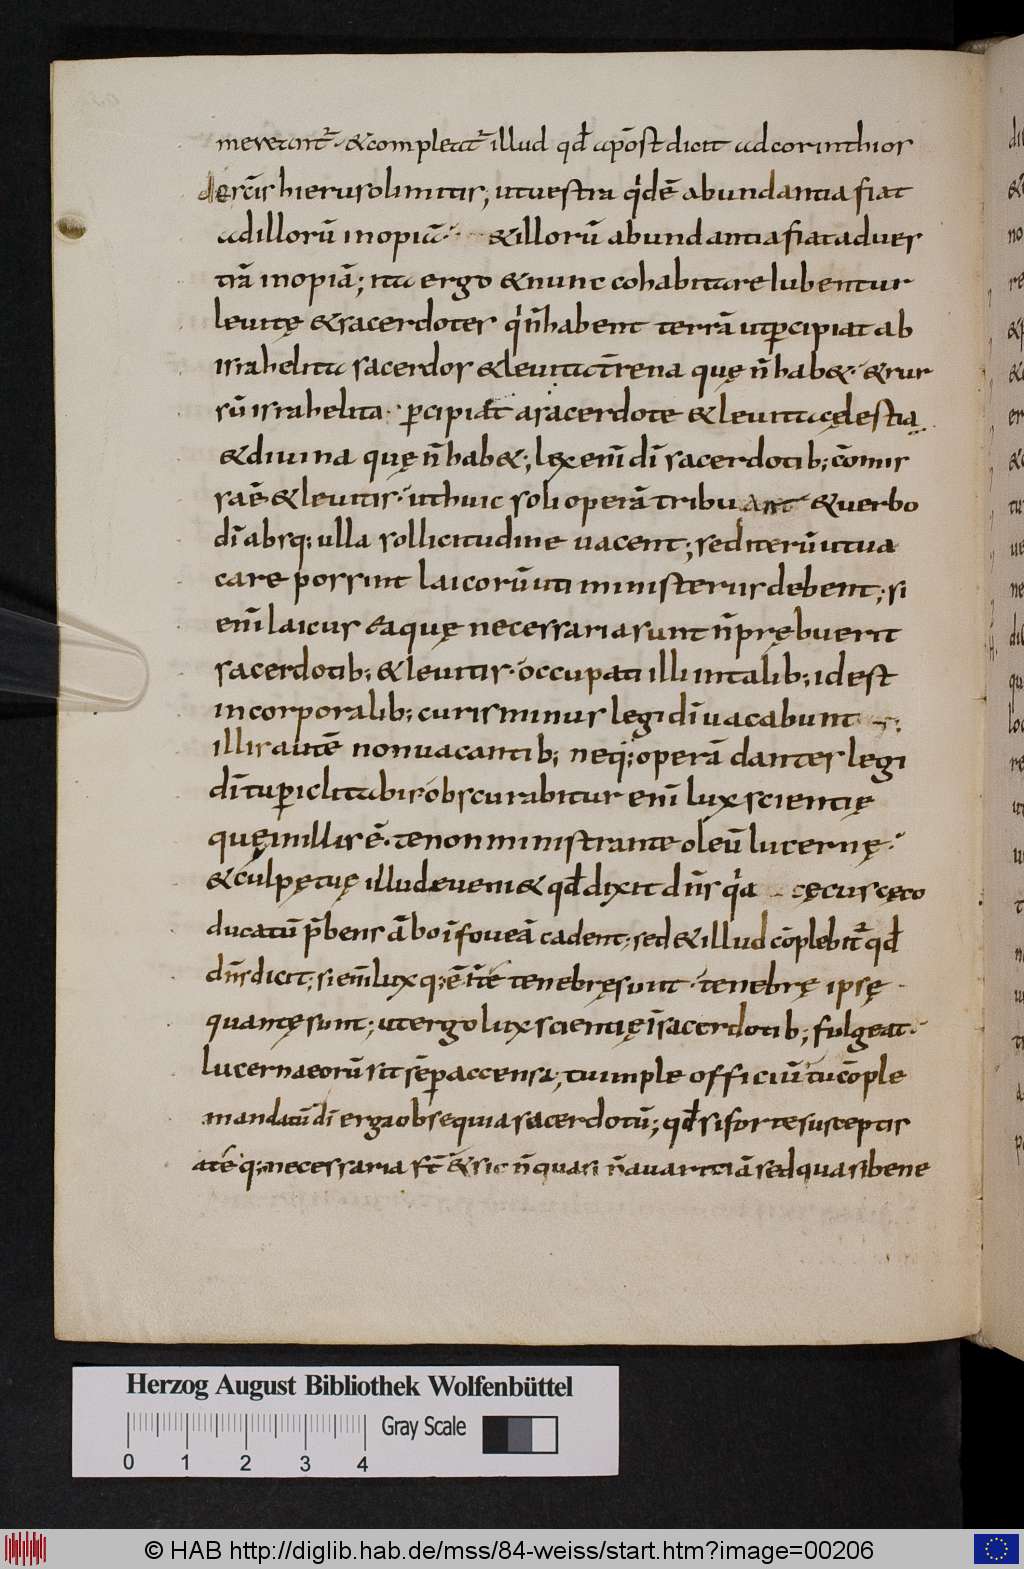 meretant᷑· &compleat᷑ illud qđ apōst dicit adcorinthios
descīs hierusolimitis; utuestra q͛dē abundantia fiat
adillorū inopiā· &illorū abundantia fiat aduės
trā inopiā; ita ergo &nunc cohabitare iubentur
leuitę &sacerdotes q͛n̄habent terrā utꝑcipiat ab
israhelita sacerdos &leuita t̄rena quę n̄hab&· &rur
sū israhelita· ꝑcipiat asacerdote &leuita cęlestia
&diuina quę n̄hab&; lex enī dī sacerdotib; cōmis
saē· &leuitis· uthuic soli operā tribuant &uerbo
dī absq; ulla sollicitudine uacent; sed iterū utua
care possint laicorū uti ministeriis debent; si
enī laicus eaquę necessaria sunt n̄prębuerit
sacerdotib; &leuitis· occupati illi intalib; idest
incorporalib; curis minus legi dī uacabunt
illis autē nonuacantib; neq; operā dantes legi
dī tuꝑiclitabis· obscurabitur enī lux scientię
quęinillis ē· tenonministrante oleū lucernę·
&culpętuę illud eueni& qđ dixit dn̄s q͛a cęcus cęco
ducatū p̄bens ābo īfoueā cadent; sed &illud cōplebit᷑ qđ
dn̄s dicit; si enī lux q; ē īt́e tenebrę sunt· tenebrę ipsę
quantę sunt; ut ergo lux scientię īsacerdotib; fulgeat·
lucernaeorū sit sēꝑ accensa; tu imple officiū tu cōple
mandatū dī erga obsequia sacerdotū; qđ si forte susceptis
atē q; necessaria st̄ &sic n̄quasi n̄auaritiā sed quasi bene
Herzog August Bibliothek Wolfenbüttel
Gray Scale
0 1 2 3 4
© HAB http://diglib.hab.de/mss/84-weiss/start.htm?image=00206